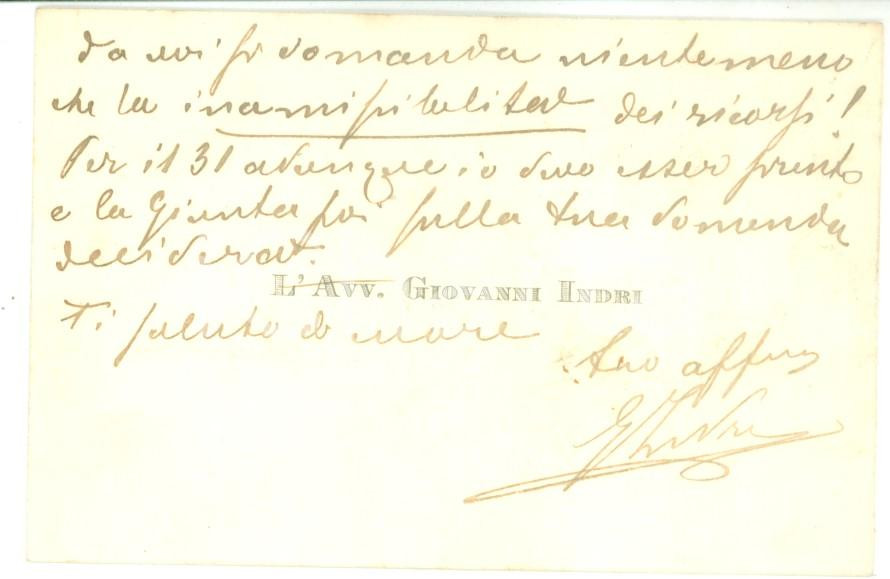 da voi si domanda nientemeno
che la inamissibilità dei ricorsi!
Per il 31 adunque io devo esser pronto
e la Giunta poi sulla tua domanda
deciderà.
L' Avv. Giovanni Indri
Ti saluto di cuore
tuo affmo
GIndri